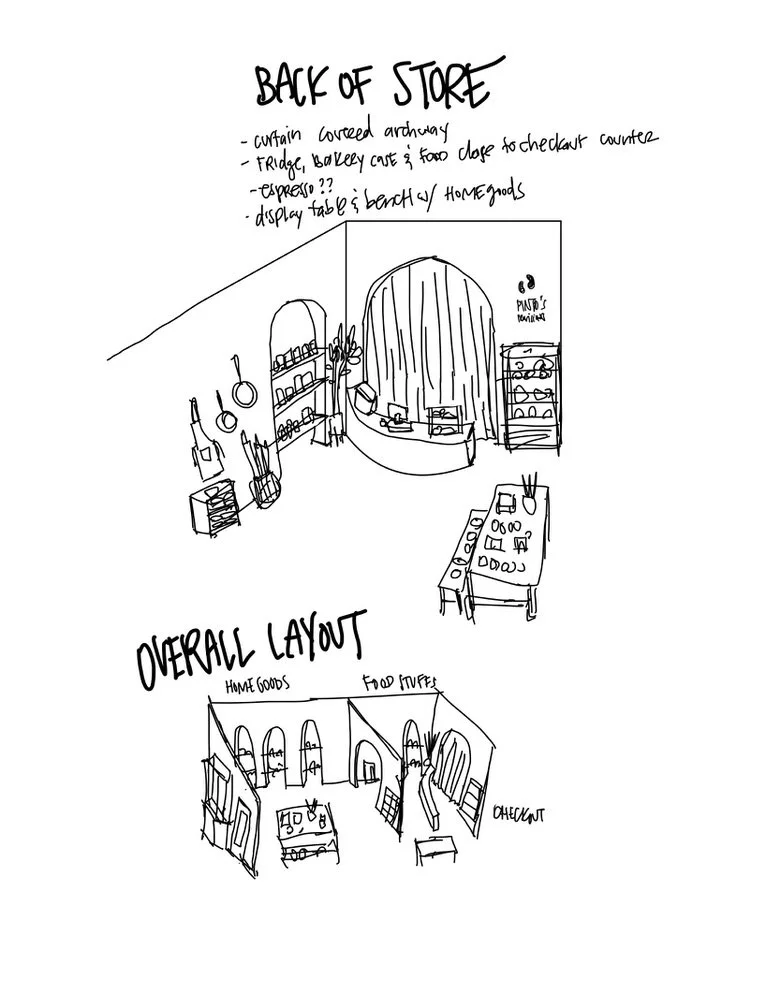 BACK OF STORE
- curtain covered archway
- Fridge, Bakery case & Food close to checkout counter
- espresso??
- display table & bench w/ HOMEgoods
PINTO'S
OVERALL LAYOUT
HOMEGOODS FOOD STUFFS
CHECKOUT